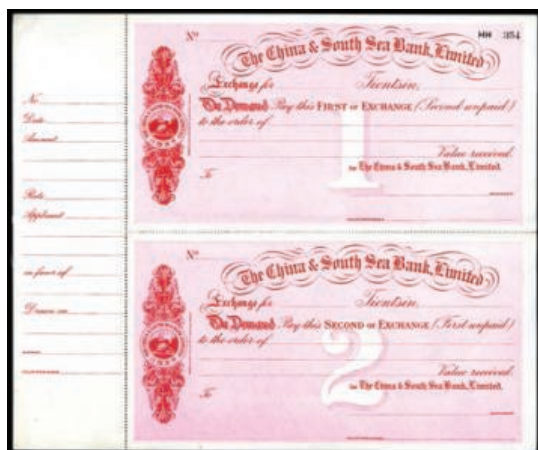 No
Date
Amount
Rate
Applicant
in favor of
Drawn on
No HH 354
The China & South Sea Bank, Limited
Exchange for Tientsin,
On Demand Pay this FIRST of EXCHANGE (Second unpaid)
to the order of
1
Value received
For The China & South Sea Bank, Limited.
To
No
The China & South Sea Bank, Limited
Exchange for Tientsin,
On Demand Pay this SECOND of EXCHANGE (First unpaid)
to the order of
2
Value received
For The China & South Sea Bank, Limited.
To